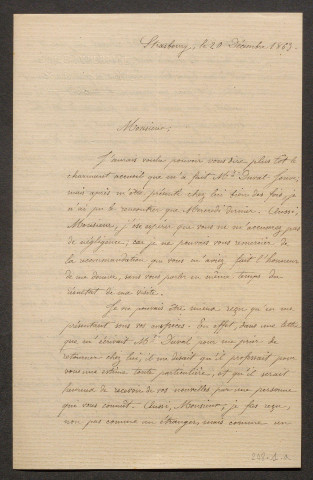 Strasbourg, le 20 Décembre 1853.
Monsieur,
J'aurais voulu pouvoir vous dire plus tôt le
charmant accueil que m'a fait Mr. Duval-Jouve,
mais après m'être présenté chez lui bien des fois, je
n'ai pu le rencontrer que Mercredi dernier. Aussi,
Monsieur, j'ose espérer que vous ne m'accuserez pas
de négligence, car je ne pouvais vous remercier de
la recommandation que vous m'aviez fait l'honneur
de me donner, sans vous parler en même temps du
résultat de ma visite.
Je ne pouvais être mieux reçu qu'en me
présentant sous vos auspices. En effet, dans une lettre
que m'écrivait Mr. Duval pour me prier de
retourner chez lui, il me disait qu'il professait pour
vous une estime toute particulière, et qu'il serait
heureux de recevoir de vos nouvelles par une personne
qui vous connût. Aussi, Monsieur, je fus reçu,
non pas comme un étranger, mais comme un